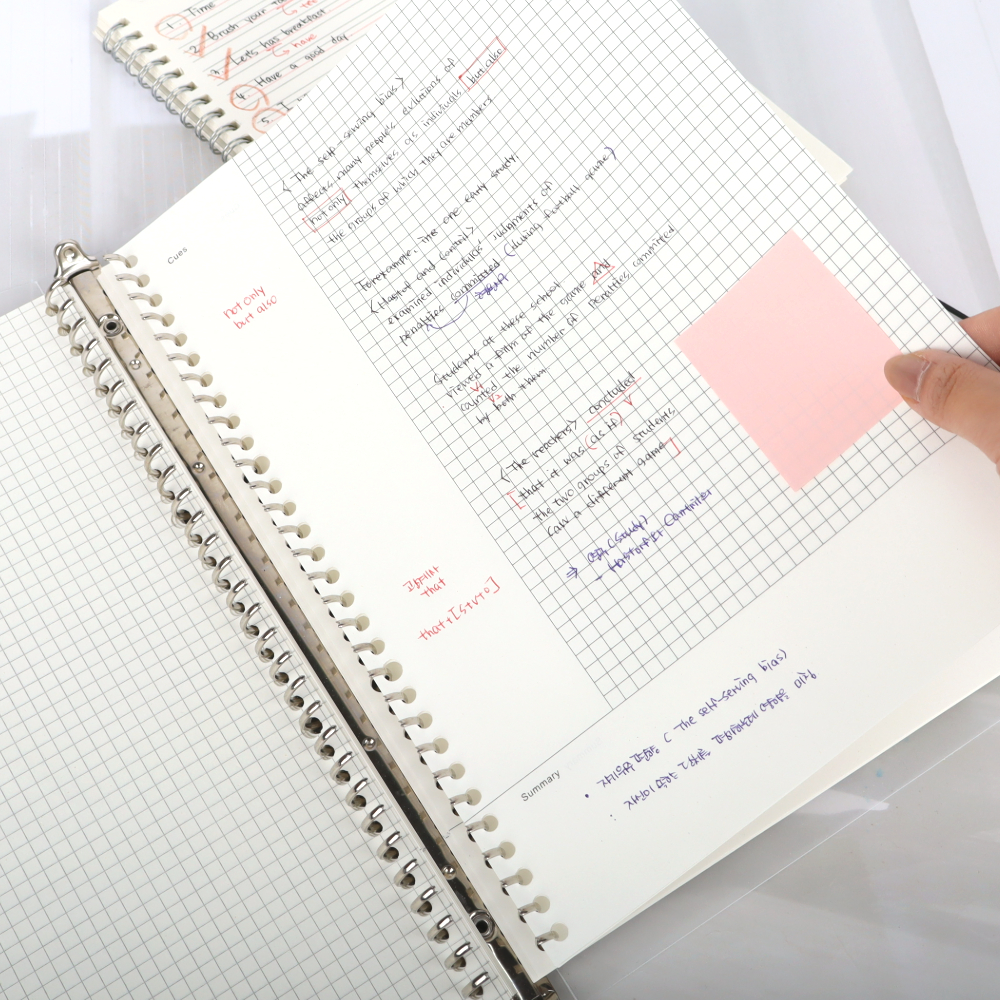 1. Time
2. Brush your
3. Let's has breakfast
have
4. Have a good day
5. I
Cues
not only
but also
< The self-serving bias >
affects many people's evalutions of
themselves as individuals but also
not only
the groups of which they are members
For example, In one early study.
< Hastorf and Cantril >
examined individuals' judgments of
penalties committed (during football game)
Students at these school
viewed a film of the game and
counted the number of penalties committed
V1
V2
by both them.
< The reachers > concluded
V
[that it was (as if)
the two groups of students
saw a different game]
⇒ 연구 (study)
- Hastorf와 Cantril
that
that+[S+V+O]
Summary
( The self-serving bias)